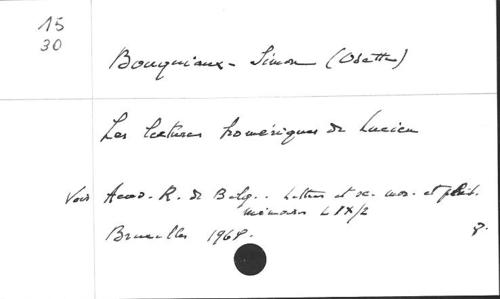 15
30
Bouquiaux-Simon (Odette)
Les lectures homériques de Lucien
Voir Acad. R. de Belg.. Lettres et sc. mor. et polit.
mémoires LIX/2
Bruxelles 1968.
8.